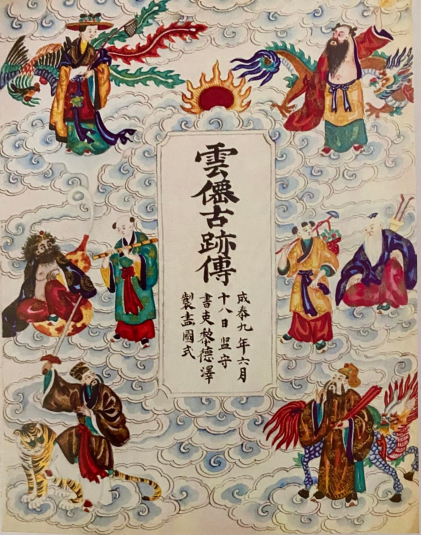 雲僊古跡傳
成泰九年六月
十八日监守
書吏黎德澤
製畫國式